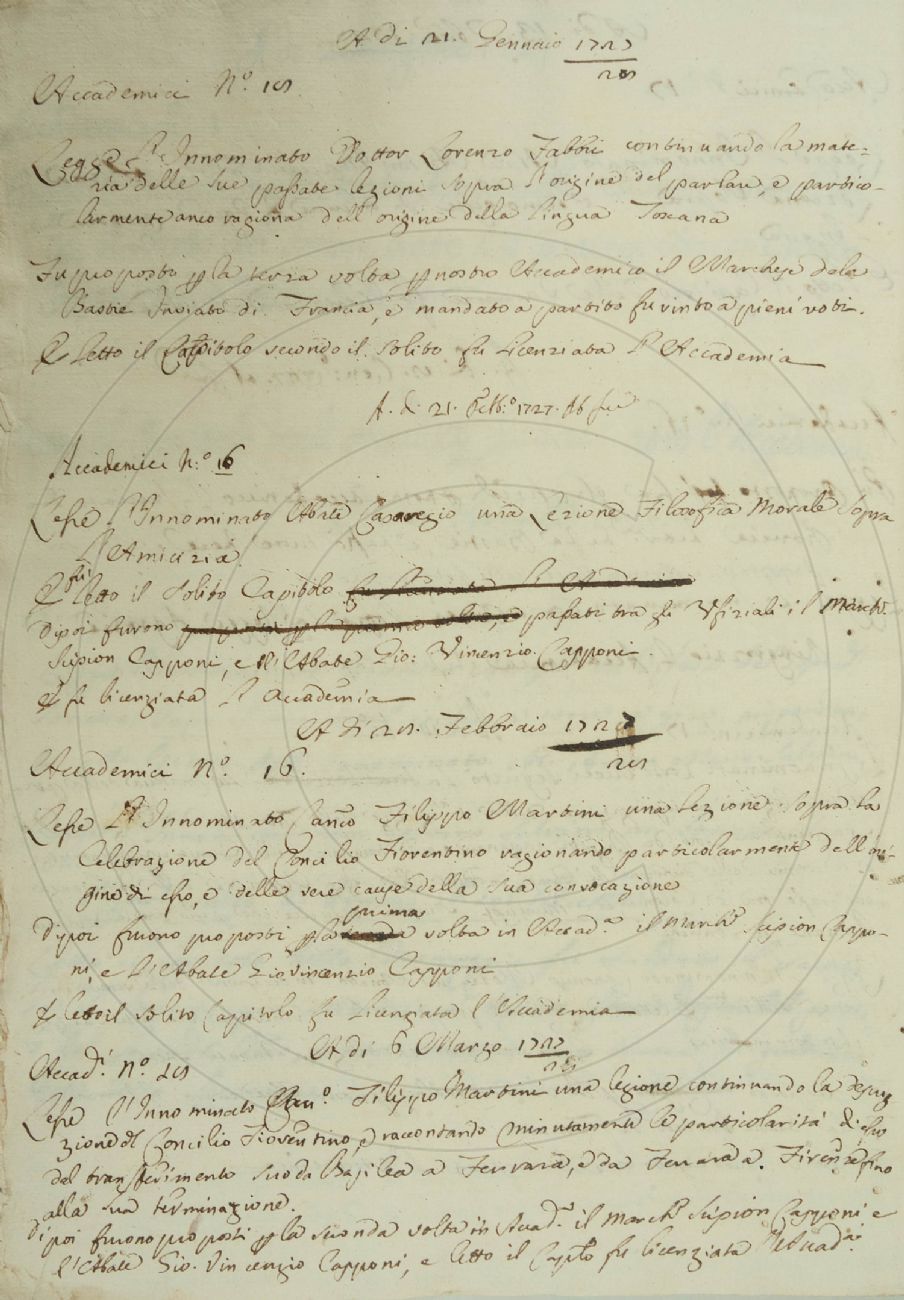 A di 21. Gennaio 1727
28
Accademici N.º 18
Legge l'Innominato Dottor Lorenzo Fabbri continuando la mate=
ria delle sue passate lezioni sopra l'origine del parlare, e partico-
larmente anco ragiona dell'origine della lingua Toscana
Fu proposto p la terza volta p nostro Accademico il Marchese dela
Bastie Inviato di Francia, e mandato a partito fu vinto a pieni voti.
E letto il Capitolo secondo il solito fu licenziata l'Accademia
A. di 21. 1727. Ab
Accademici N.º 16
Lesse l'Innominato Abate Casaregio una Lezione Filosofica Morale sopra
l'Amicizia.
E fu letto il solito Capitolo
Dipoi furono passati tra gli Ufiziali il March.
Scipion Capponi, e l'Abate Gio: Vincenzio Capponi.
E fu licenziata l'accademia
A di 28. Febbraio 1727
28
Accademici N.º 16.
Lesse l'Innominato Can.co Filippo Martini una lezione sopra la
Celebrazione del Concilio Fiorentino ragionando particolarmente dell'ori-
gine di esso, e delle vere cause della sua convocazione
Dipoi furono proposti p la prima volta in Accad.a il March. Scipion Cappo-
ni, e l'Abate Giovincenzio Capponi
E letto il solito Capitolo fu licenziata l'Accademia
A di 6 Marzo 1727
28
Accad.i N.º 18
Lesse l'Innominato Can.º Filippo Martini una lezione continuando la
zione del Concilio Fiorentino, e raccontando minutamente le particolarità di esso
del transferimento suo da Basilea a Ferrara, e da Ferrara a Firenze fino
alla sua terminazione.
Dipoi furono proposti p la seconda volta in Accad.a il March. Scipion Capponi e
l'Abate Gio. Vincenzio Capponi, e letto il Cap.lo fu licenziata l'Accad.a